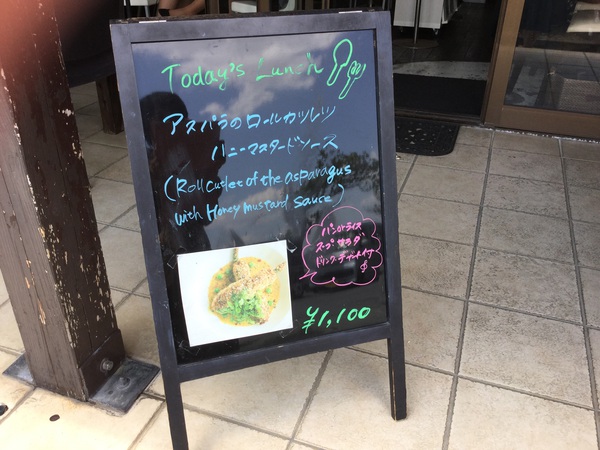 Today's Lunch
アスパラのロールカツレツ
ハニーマスタードソース
(Roll cutlet of the asparagus
with Honey mustard sauce)
パンorライス
スープ サラダ
ドリンク・デザート付
¥1,100